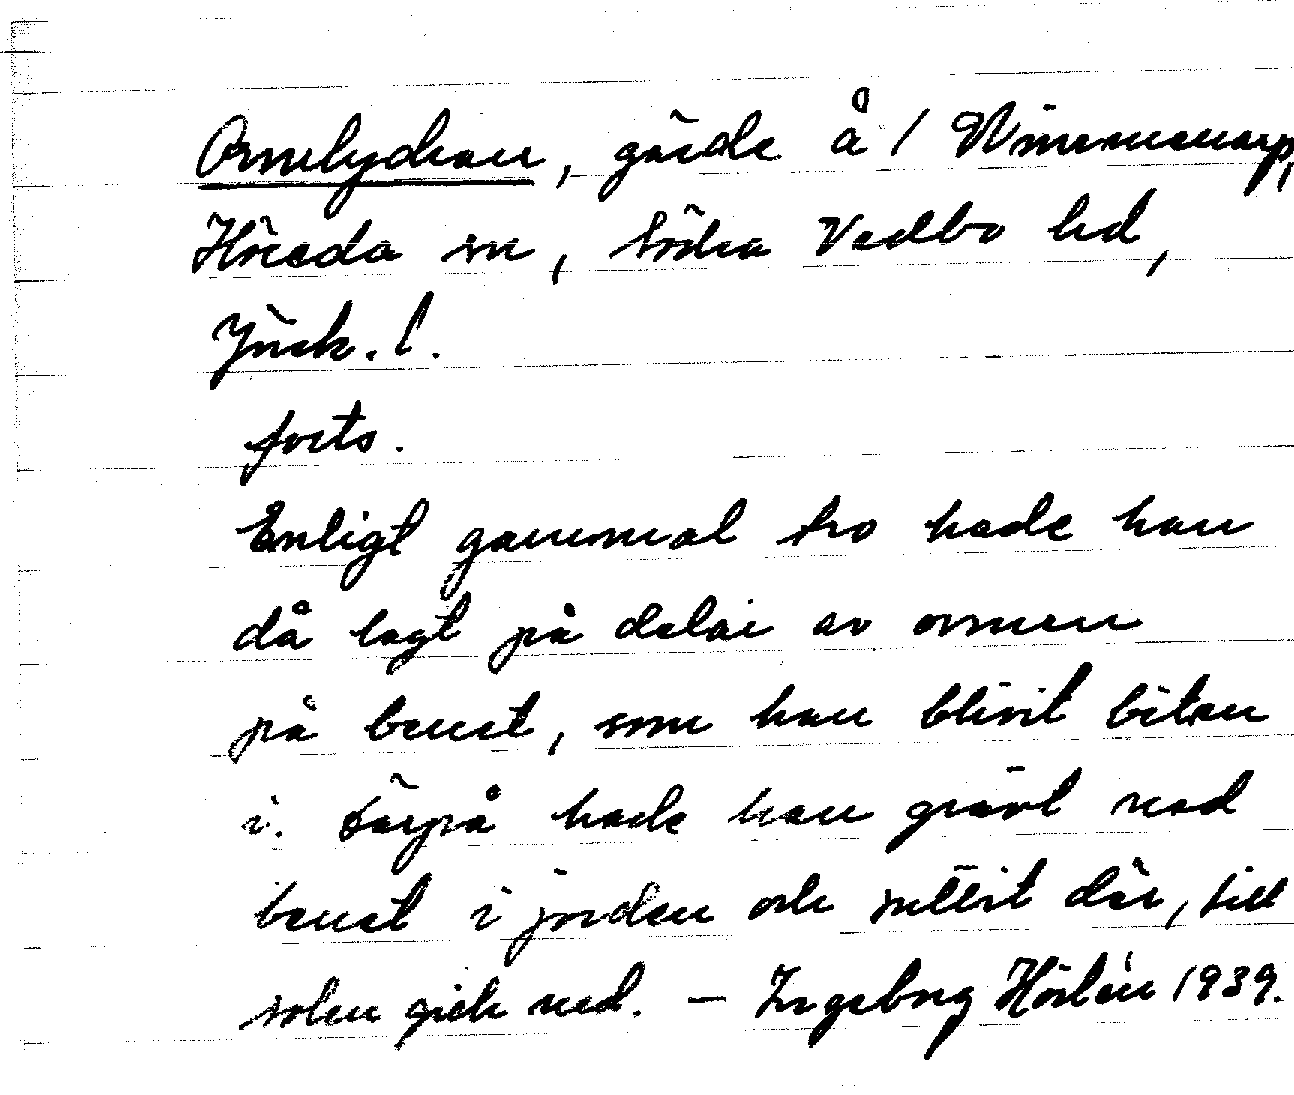 Ormlyckan, gärde å / Vimmenarp,
Höreda sn, Södra Vedbo hd,
Jönk. l.
forts.
Enligt gammal tro hade han
då lagt på delar av ormen
på benet, som han blivit biten
i. Därpå hade han grävt ned
benet i jorden och suttit där, till
solen gick ned. – Ingeborg Hörlén 1939.